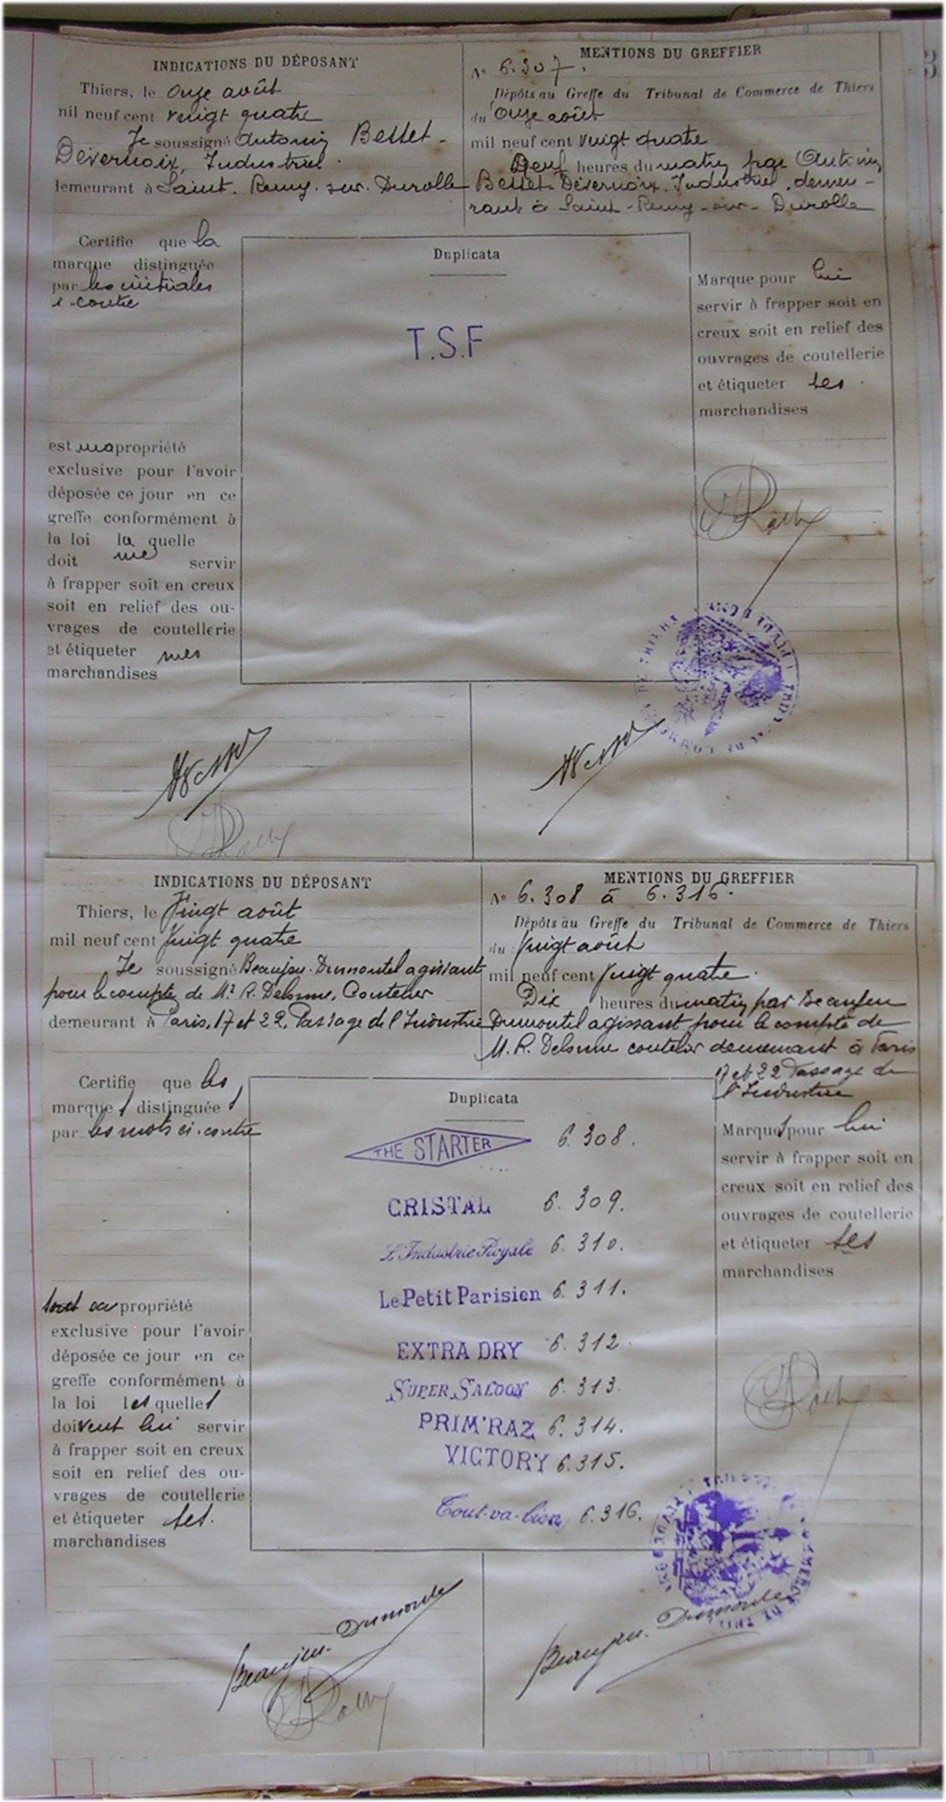 INDICATIONS DU DÉPOSANT
Thiers, le onze août
mil neuf cent vingt quatre
Je soussigné Antonin Bellet-
Dévernoix, Industriel
demeurant à Saint-Remy-sur-Durolle
MENTIONS DU GREFFIER
No 6.307.
Dépôts au Greffe du Tribunal de Commerce de Thiers
du onze août
mil neuf cent vingt quatre
Neuf heures du matin par Antonin
Bellet-Dévernoix, Industriel, demeu-
rant à Saint-Remy-sur-Durolle
Certifie que la
marque distinguée
par les initiales
ci-contre
est ma propriété
exclusive pour l'avoir
déposée ce jour en ce
greffe conformément à
la loi la quelle
doit me servir
à frapper soit en creux
soit en relief des ou-
vrages de coutellerie
et étiqueter mes
marchandises
Duplicata
T.S.F
Marque pour lui
servir à frapper soit en
creux soit en relief des
ouvrages de coutellerie
et étiqueter ses
marchandises
INDICATIONS DU DÉPOSANT
Thiers, le Vingt août
mil neuf cent vingt quatre
Je soussigné Beaujeu-Dumontel agissant
pour le compte de Mr R. Delsuue, Coutelier
demeurant à Paris, 17 et 22, Passage de l'Industrie
MENTIONS DU GREFFIER
No 6.308 à 6.316.
Dépôts au Greffe du Tribunal de Commerce de Thiers
du vingt août
mil neuf cent vingt quatre.
Dix heures du matin par Beaujeu
Dumontel agissant pour le compte de
M. R. coutelier demeurant à Paris
17 et 22 Passage de
l'Industrie
Certifie que les
marques distinguées
par les mots ci-contre
sont sa propriété
exclusive pour l'avoir
déposée ce jour en ce
greffe conformément à
la loi lesquelles
doivent lui servir
à frapper soit en creux
soit en relief des ou-
vrages de coutellerie
et étiqueter ses.
marchandises
Duplicata
THE STARTER 6.308.
CRISTAL 6.309.
L'Industrie Royale 6.310.
Le Petit Parisien 6.311.
EXTRA DRY 6.312.
SUPER SALOON 6.313.
PRIM'RAZ 6.314.
VICTORY 6.315.
Tout-va-bien 6.316.
Marques pour lui
servir à frapper soit en
creux soit en relief des
ouvrages de coutellerie
et étiqueter ses
marchandises
Beaujeu-Dumontel
Beaujeu-Dumontel